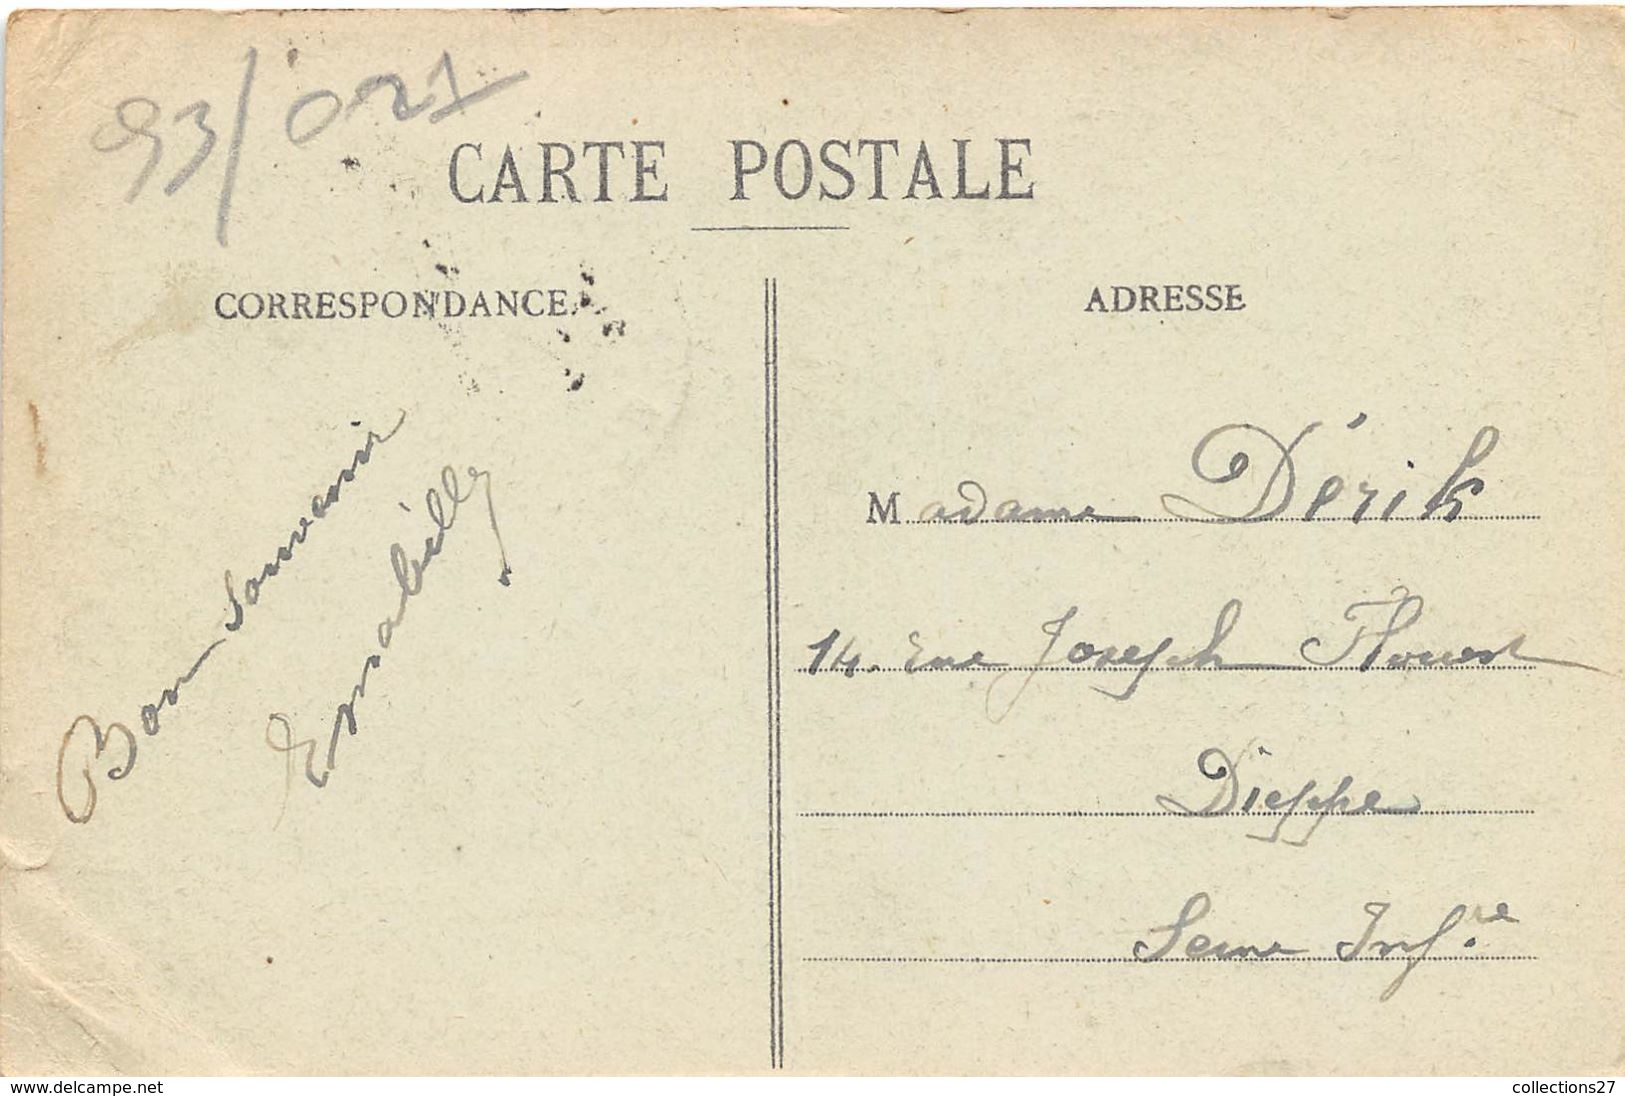 93/021
CARTE POSTALE
CORRESPONDANCE
ADRESSE
Bon Souvenir
Madame Dérik
14. rue Joseph Flouest
Dieppe
Seine Infre
www.delcampe.net
collections27